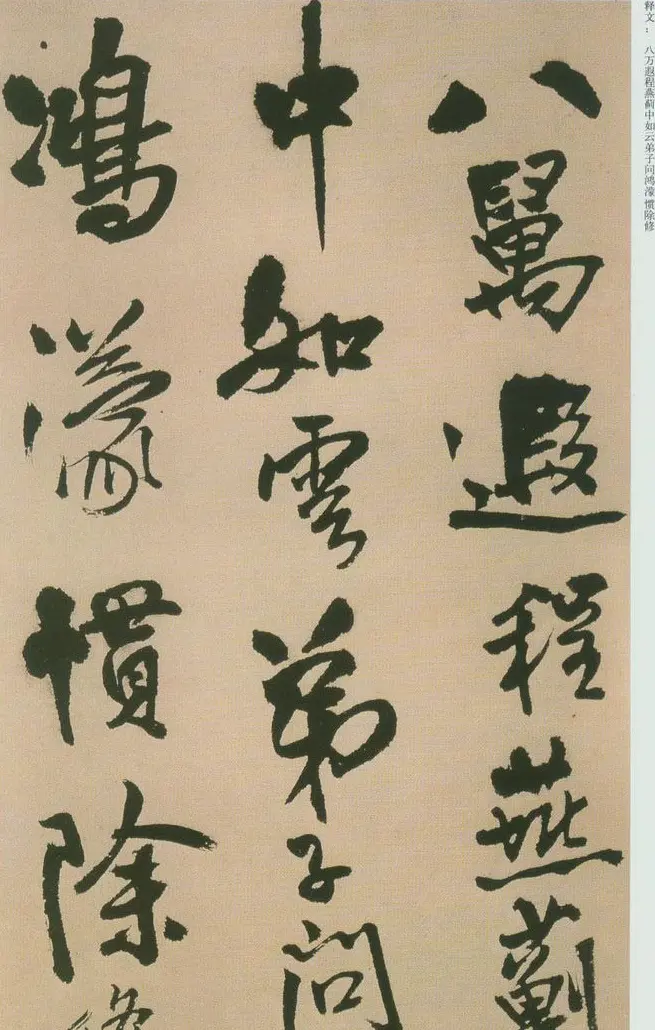 释文： 八万遐程燕蓟中如云弟子问鸿濛惯除修
八萬遐程燕薊
中如雲弟子問
鴻濛慣除修